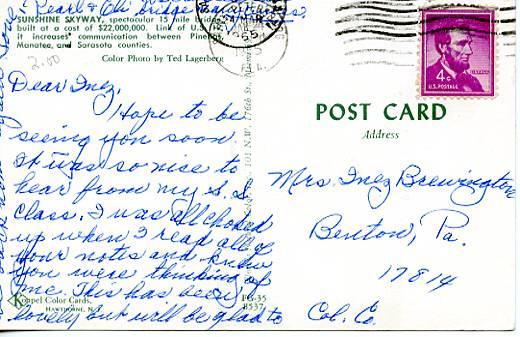 Pearl &
SUNSHINE SKYWAY, spectacular 15 mile bridge
built at a cost of $22,000,000. Link of U.S.
it increases communication between Pinellas,
Manatee, and Sarasota counties.
Color Photo by Ted Lagerberg
2.00
Dear Inez,
Hope to be
seeing you soon.
It was so nice to
hear from my S. S.
Class. I was all choked
up when I read all of
your notes and knew
you were thinking of
me. This has been
lovely but will be glad to
Koppel Color Cards,
HAWTHORNE, N.J.
FG-35
8537
MAR
1965
4¢
U.S. POSTAGE
POST CARD
Address
Mrs. Inez Brewington
Benton, Pa.
17814
Col. Co.